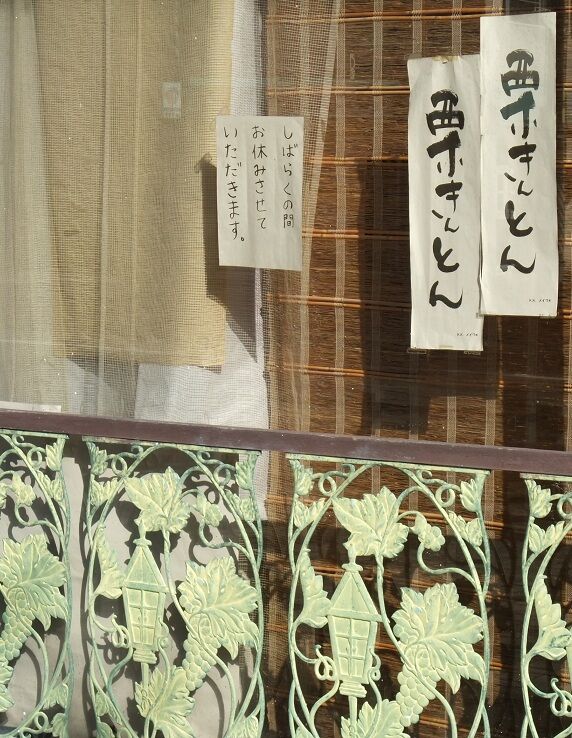 栗きんとん
栗きんとん
しばらくの間
お休みさせて
いただきます。